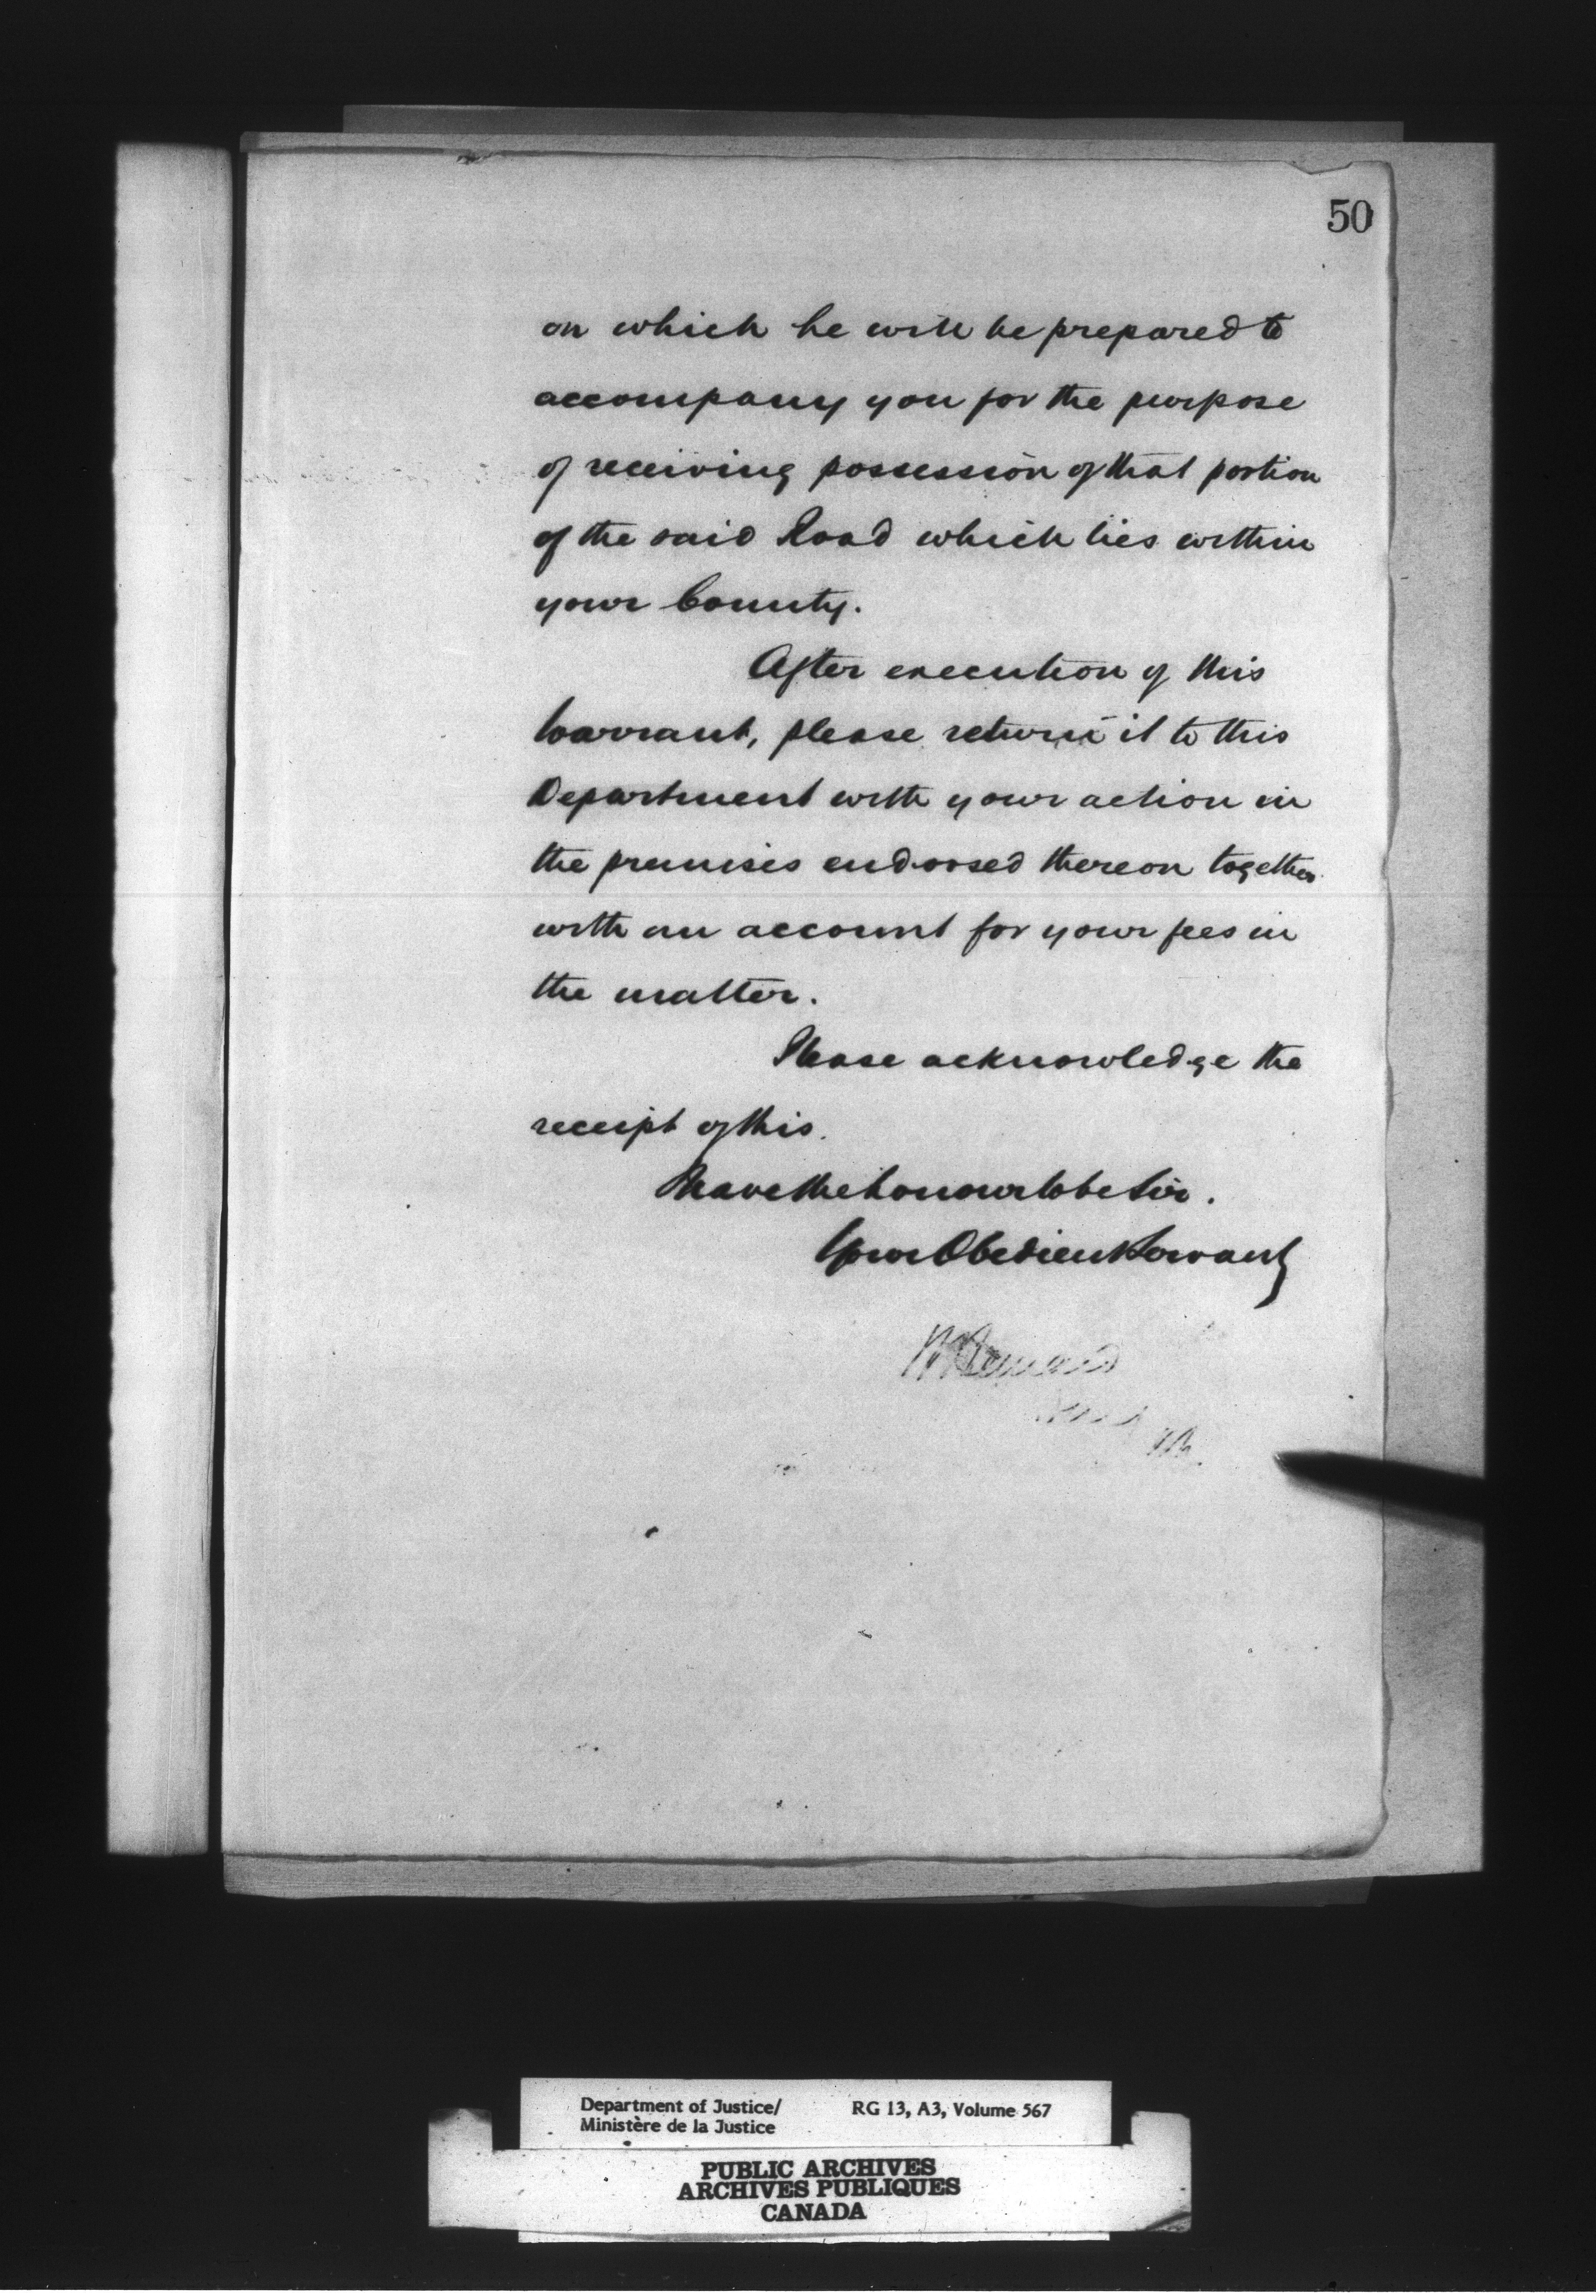 50
on which he will be prepared to
accompany you for the purpose
of receiving possession of that portion
of the said Road which lies within
your County.
After execution of this
Warrant, please return it to this
Department with your action in
the premises endorsed thereon together
with an account for your fees in
the matter.
Please acknowledge the
receipt of this.
I have the honour to be Sir.
Your Obedient Servant
Department of Justice/ RG 13, A3, Volume 567
Ministère de la Justice
PUBLIC ARCHIVES
ARCHIVES PUBLIQUES
CANADA